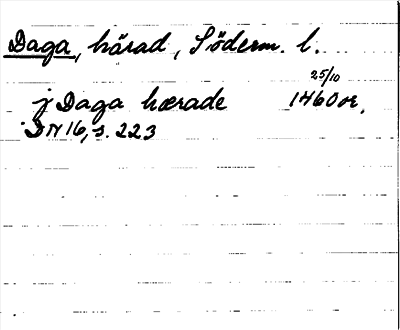 Daga, härad, Söderm. l.
j Daga hærade 25/10 1460 or.
DN 16, s. 223